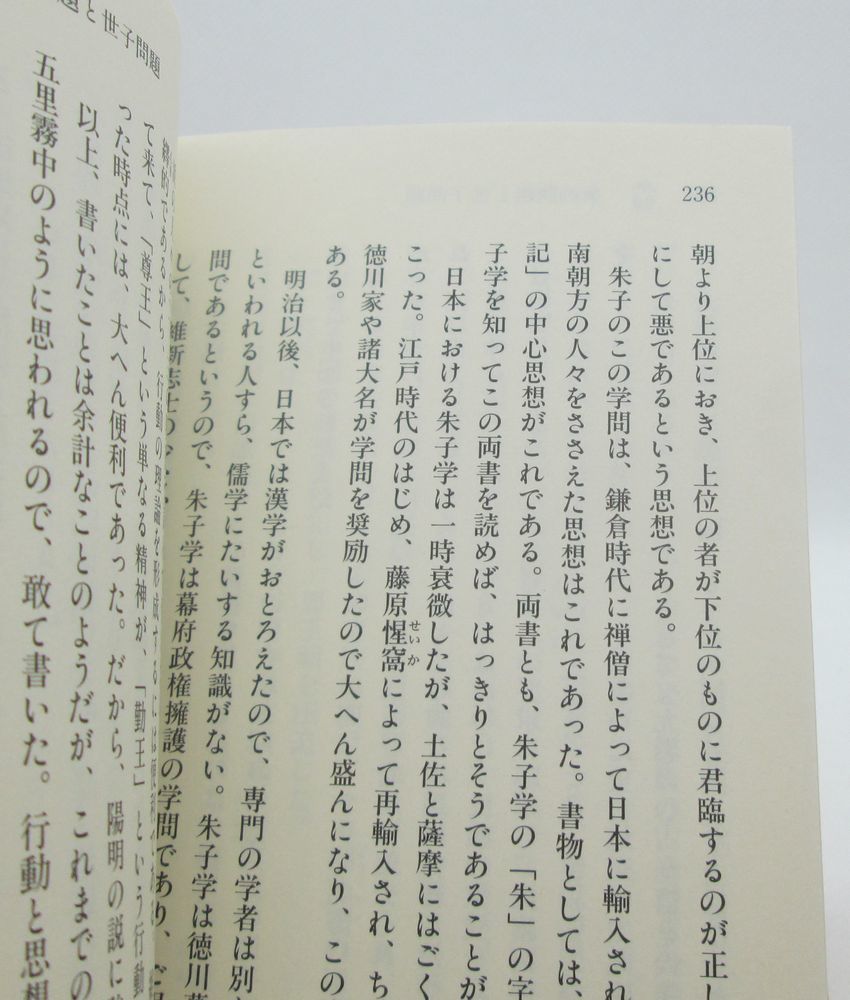 236
朝より上位におき、上位の者が下位のものに君臨するのが正し
にして悪であるという思想である。
朱子のこの学問は、鎌倉時代に禅僧によって日本に輸入され
南朝方の人々をささえた思想はこれであった。書物としては、
記」の中心思想がこれである。両書とも、朱子学の「朱」の字
子学を知ってこの両書を読めば、はっきりとそうであることが
日本における朱子学は一時衰微したが、土佐と薩摩にはごく
こった。江戸時代のはじめ、藤原惺窩せいかによって再輸入され、ち
徳川家や諸大名が学問を奨励したので大へん盛んになり、この
ある。
明治以後、日本では漢学がおとろえたので、専門の学者は別
といわれる人すら、儒学にたいする知識がない。朱子学は徳川
問であるというので、朱子学は幕府政権擁護の学問であり、
して、維新志士の
と世子問題
的であるから、行動の理論を形成するには
て来て、「尊王」という単なる精神が、「勤王」という行動
った時点には、大へん便利であった。だから、陽明の説に
以上、書いたことは余計なことのようだが、これまでの
五里霧中のように思われるので、敢て書いた。行動と思想